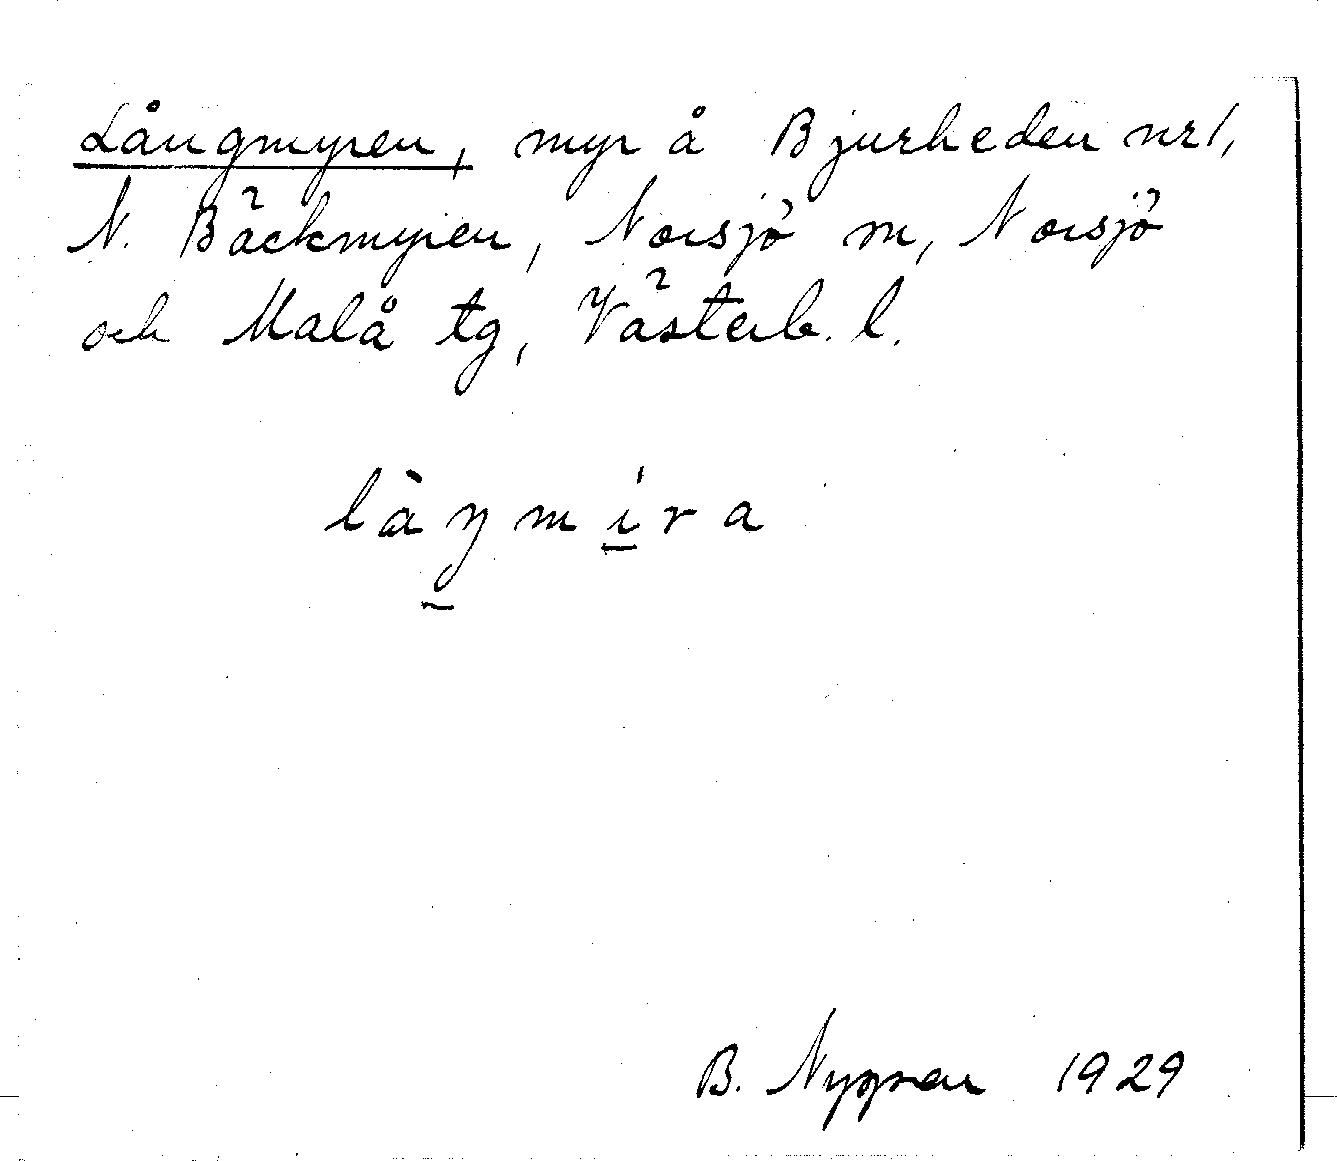 Långmyren, myr å Bjurheden nr 1,
N. Bäckmyren, Norsjö sn, Norsjö
och Malå tg, Västerb. l.
làŋmíra
B. Nygren 1929